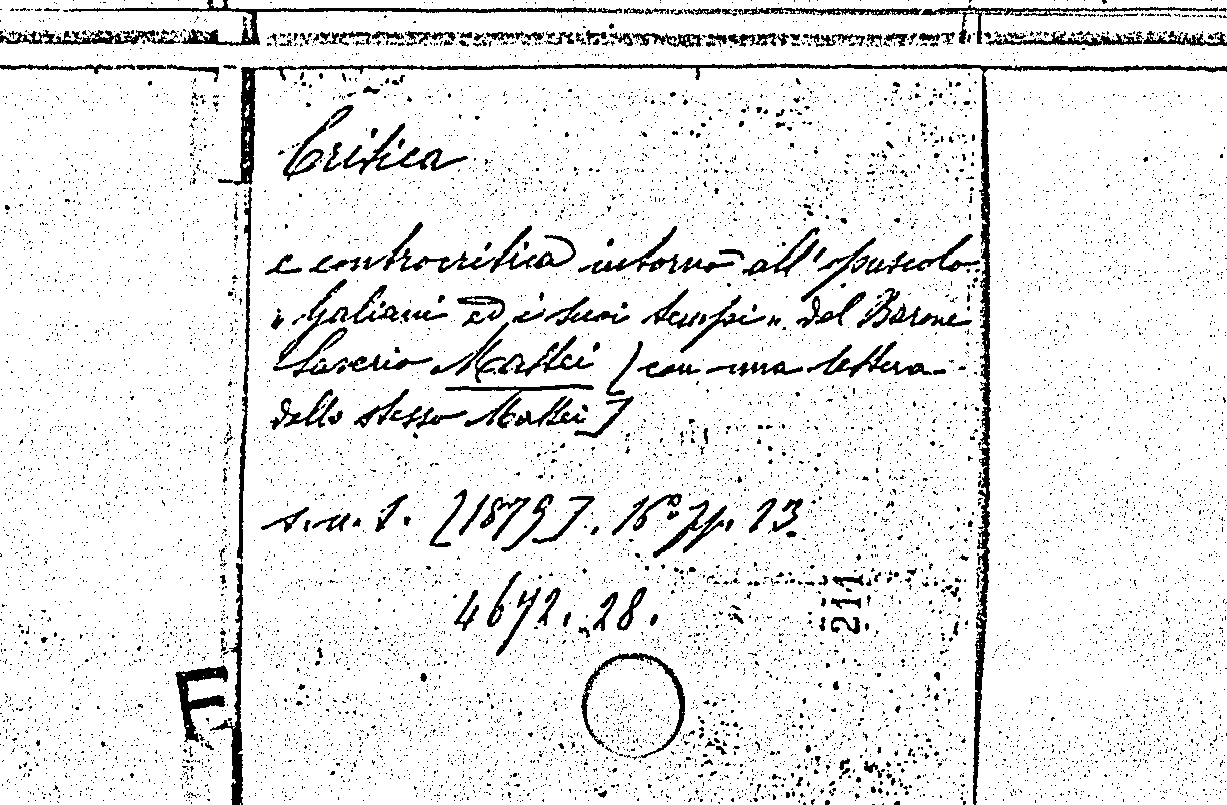 Critica
e controcritica intorno all'opuscolo
"Galiani ed i suoi tempi" del Barone
Saverio Mattei [con una lettera
dello stesso Mattei]
s.n.t. [1879]. 16° pp. 23.
4672. 28.
211
E